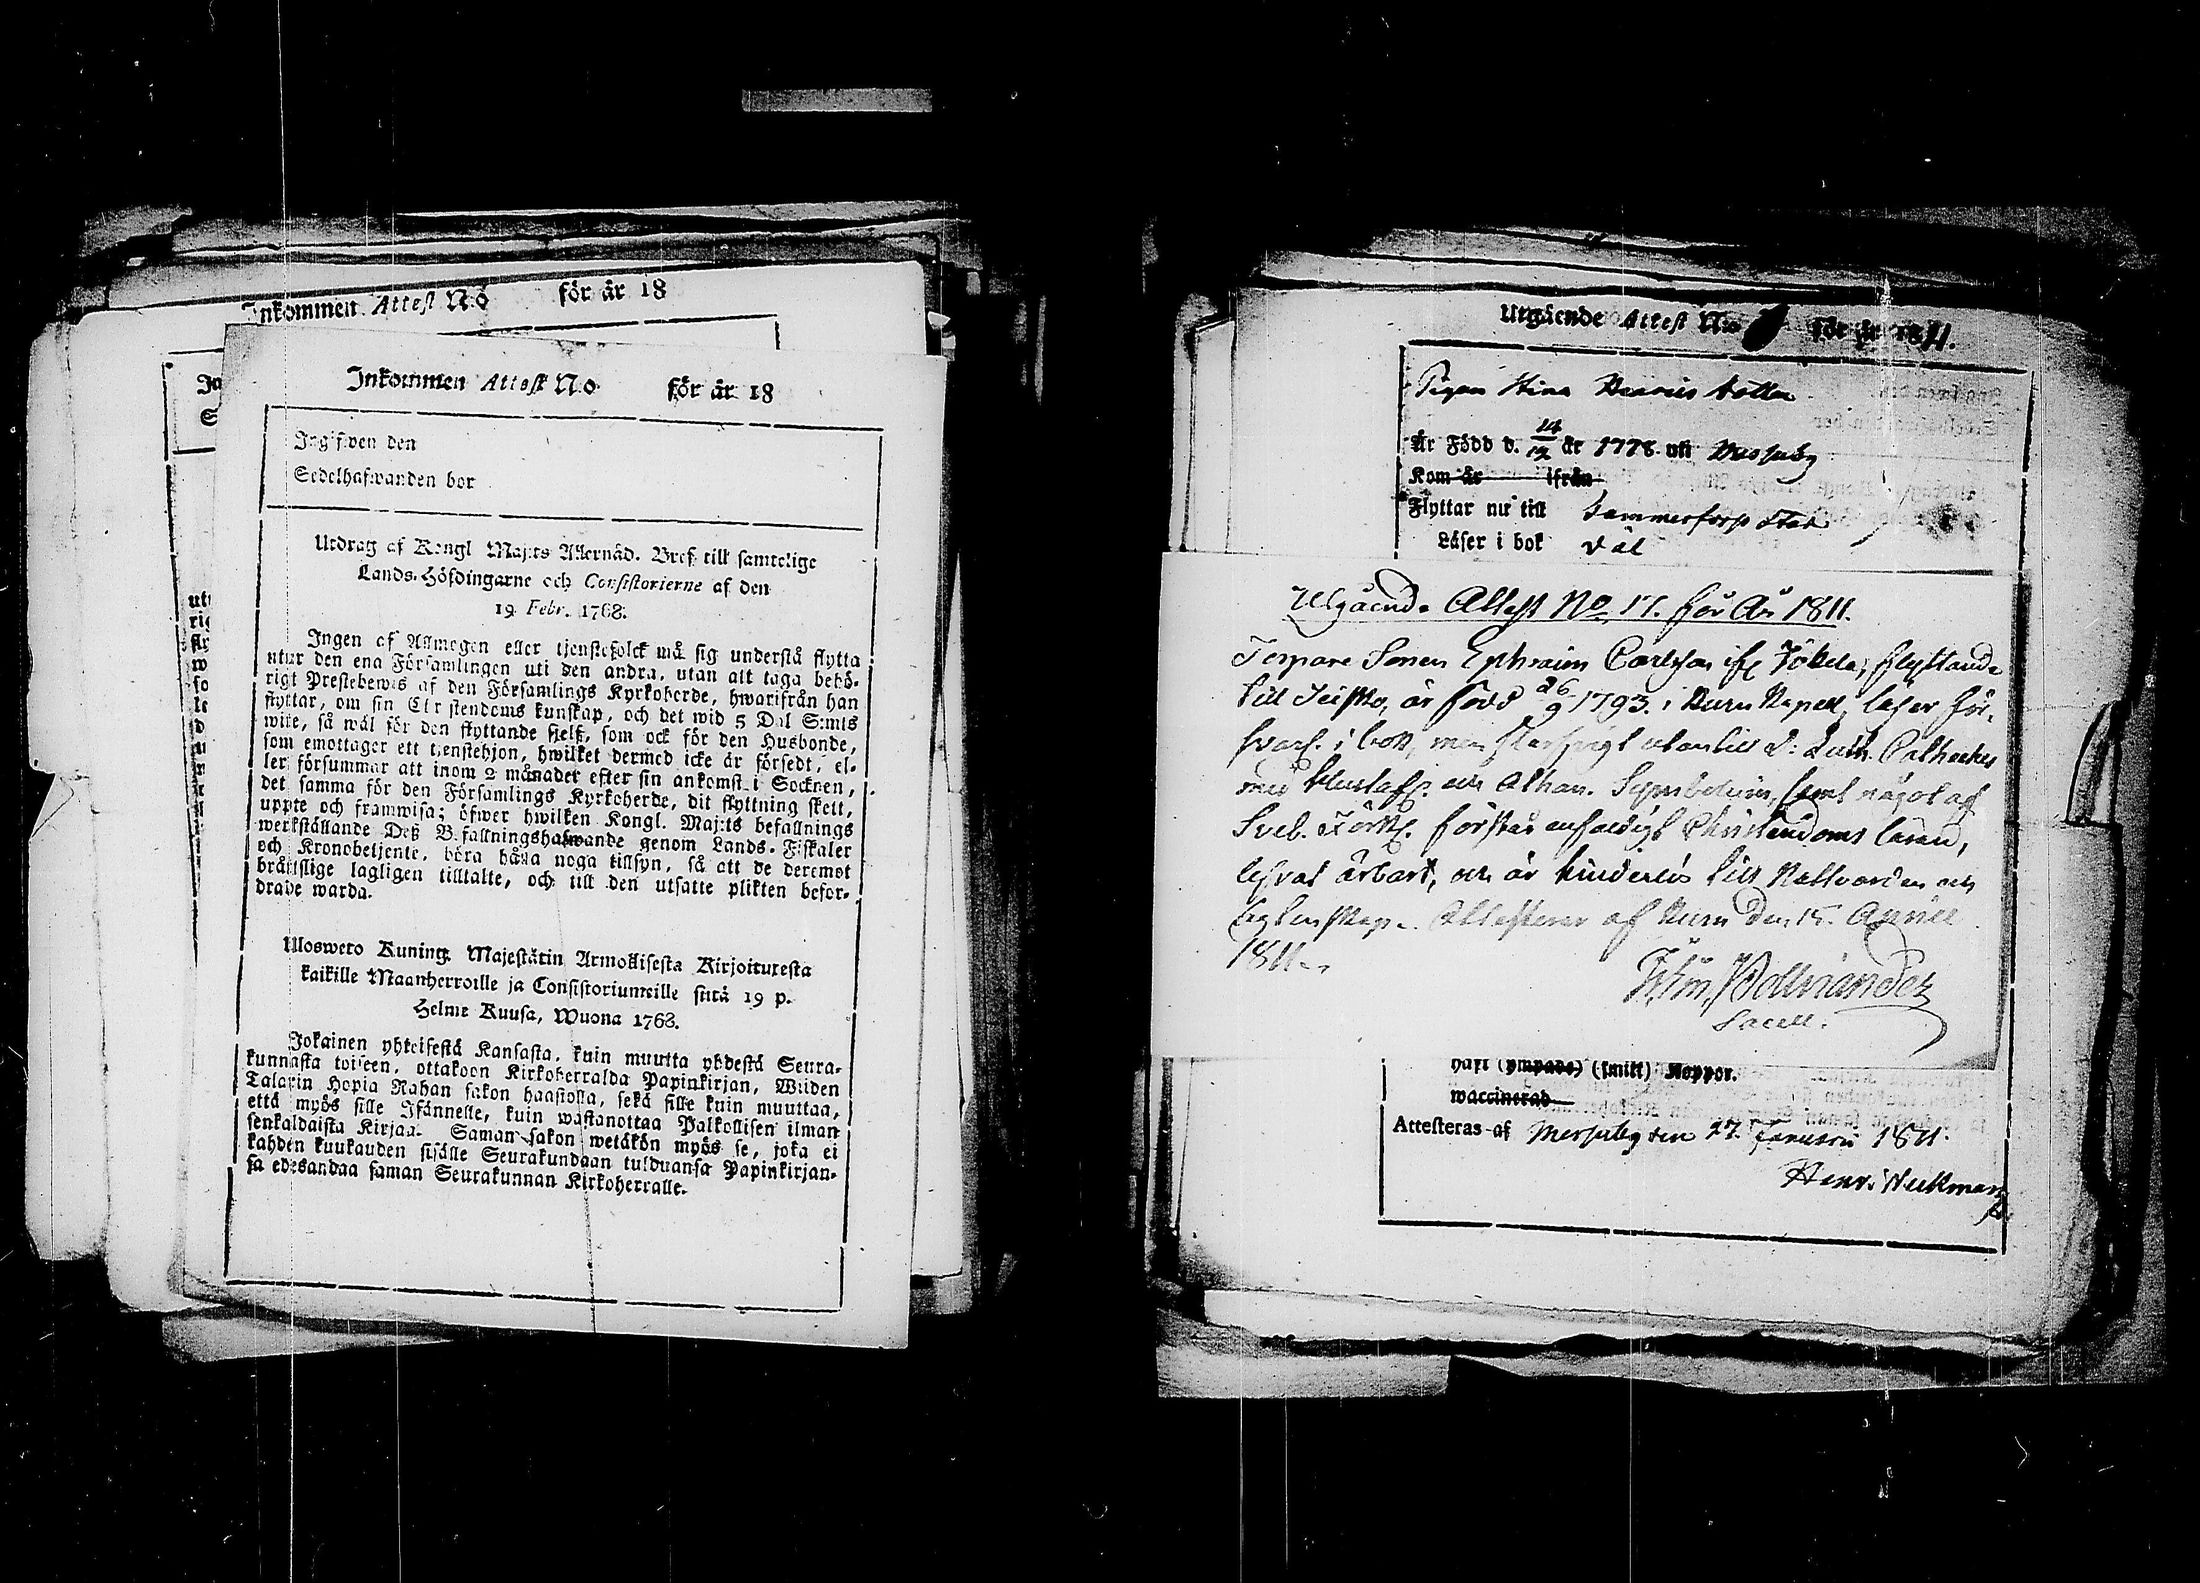 Inkommen Attest No för år 18
Inkommen Attest No för år 18
Ingifwen den
Sedelhafwanden bor
Utdrag af Kongl Maj:ts Allernåd. Bref till samtelige
Lands-Höfdingarne och Consistorierne af den
19 Febr. 1768.
Ingen af Allmogen eller tjenstefolck må sig understå flytta
utur den ena Församlingen uti den andra, utan att taga behö-
rigt Prestebewis af den Församlings Kyrkoherde, hwarifrån han
flyttar, om sin Christendoms kunskap, och det wid 5 Dal S:mts
wite, så wäl för den flyttande sjelf, som ock för den Husbonde,
som emottager ett tjenstehjon, hwilket dermed icke är försedt, el-
ler försummar att inom 2 månader efter sin ankomst i Socknen,
det samma för den Församlings Kyrkoherde, dit flyttning skett,
uppte och framwisa; öfwer hwilken Kongl. Maj:ts befallnings
werkställande Deß Befallningshafwande genom Lands-Fiskaler
och Kronobetjente, böra hålla noga tillsyn, så att de deremot
bråttslige lagligen tilltalte, och till den utsatte plikten befor-
drade warda.
Ulosweto Kuning. Majestätin Armollisesta Kirjoituresta
kaikille Maanherroille ja Consistoriumeille siitä 19 p.
Helme Kuusa, Wuona 1768.
Jokainen yhteisestä Kansasta, kuin muutta yhdestä Seura-
kunnasta toiseen, ottakoon Kirkoherralda Papinkirjan, Wiiden
Talarin Hopia Rahan sakon haastolla, sekä sille kuin muuttaa,
että myös sille Isännelle, kuin wastanottaa Palkollisen ilman
senkaldaista Kirjaa. Saman sakon wetäkön myös se, joka ei
kahden kuukauden sisälle Seurakundaan tulduansa Papinkirjan-
sa edesandaa saman Seurakunnan Kirkoherralle.
Utgående Attest No för år 1811.
Pigan Stina Henrics dotter
Är Född d. 14/12 år 1778. uti
Kom år ifrån
Flyttar nu till Tammerfors stad
Läser i bok väl
Utgående Attest No 17. för År 1811.
Torpare Sonen Ephraim Carlsson flyttande
till är född 26/9 1793. i Kuru Kapell, läser för-
svarl. i bok, men utantill D: Luth. Catheches
med Hustafl. och Athan. Symbolum, samt något af
Sveb. Förkl. förstår enfaldigt Christendoms läran,
lefvat ärbart, och är hinderlös till Nattvarden och
Egtenskap. Attesterar af Kuru den 15. April
1811.
Sacell.
haft (ympade) (smitt) Koppor.
waccinerad
Attesteras af den 27 Januarii 1811.
Henr. Weckman